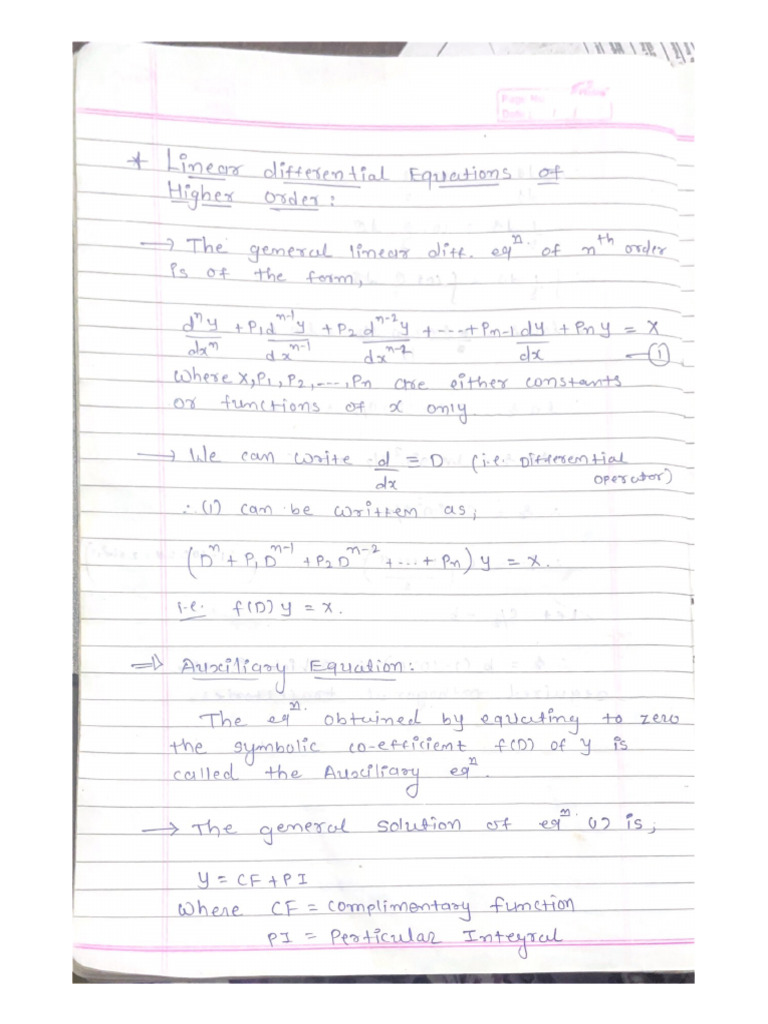 Page No.
Date: / /
* Linear differential Equations of
Higher Order:
→ The general linear diff. eqⁿ. of nᵗʰ order
is of the form,
dⁿy/dxⁿ + P₁dⁿ⁻¹y/dxⁿ⁻¹ + P₂ dⁿ⁻²y/dxⁿ⁻² + ---- + Pn-1 dy/dx + Pn y = X —①
Where X, P₁, P₂, ---, Pn are either constants
or functions of x only
→ We can write d/dx = D (i.e. Differential
operator)
∴ (1) can be written as,
(Dⁿ + P₁Dⁿ⁻¹ + P₂Dⁿ⁻² + ... + Pn) y = X.
i.e. f(D) y = X.
⇒ Auxiliary Equation:
The eqⁿ. obtained by equating to zero
the symbolic co-efficient f(D) of y is
called the Auxiliary eqⁿ.
→ The general solution of eqⁿ. (1) is,
y = CF + PI
Where CF = complimentary function
PI = Perticular Integral